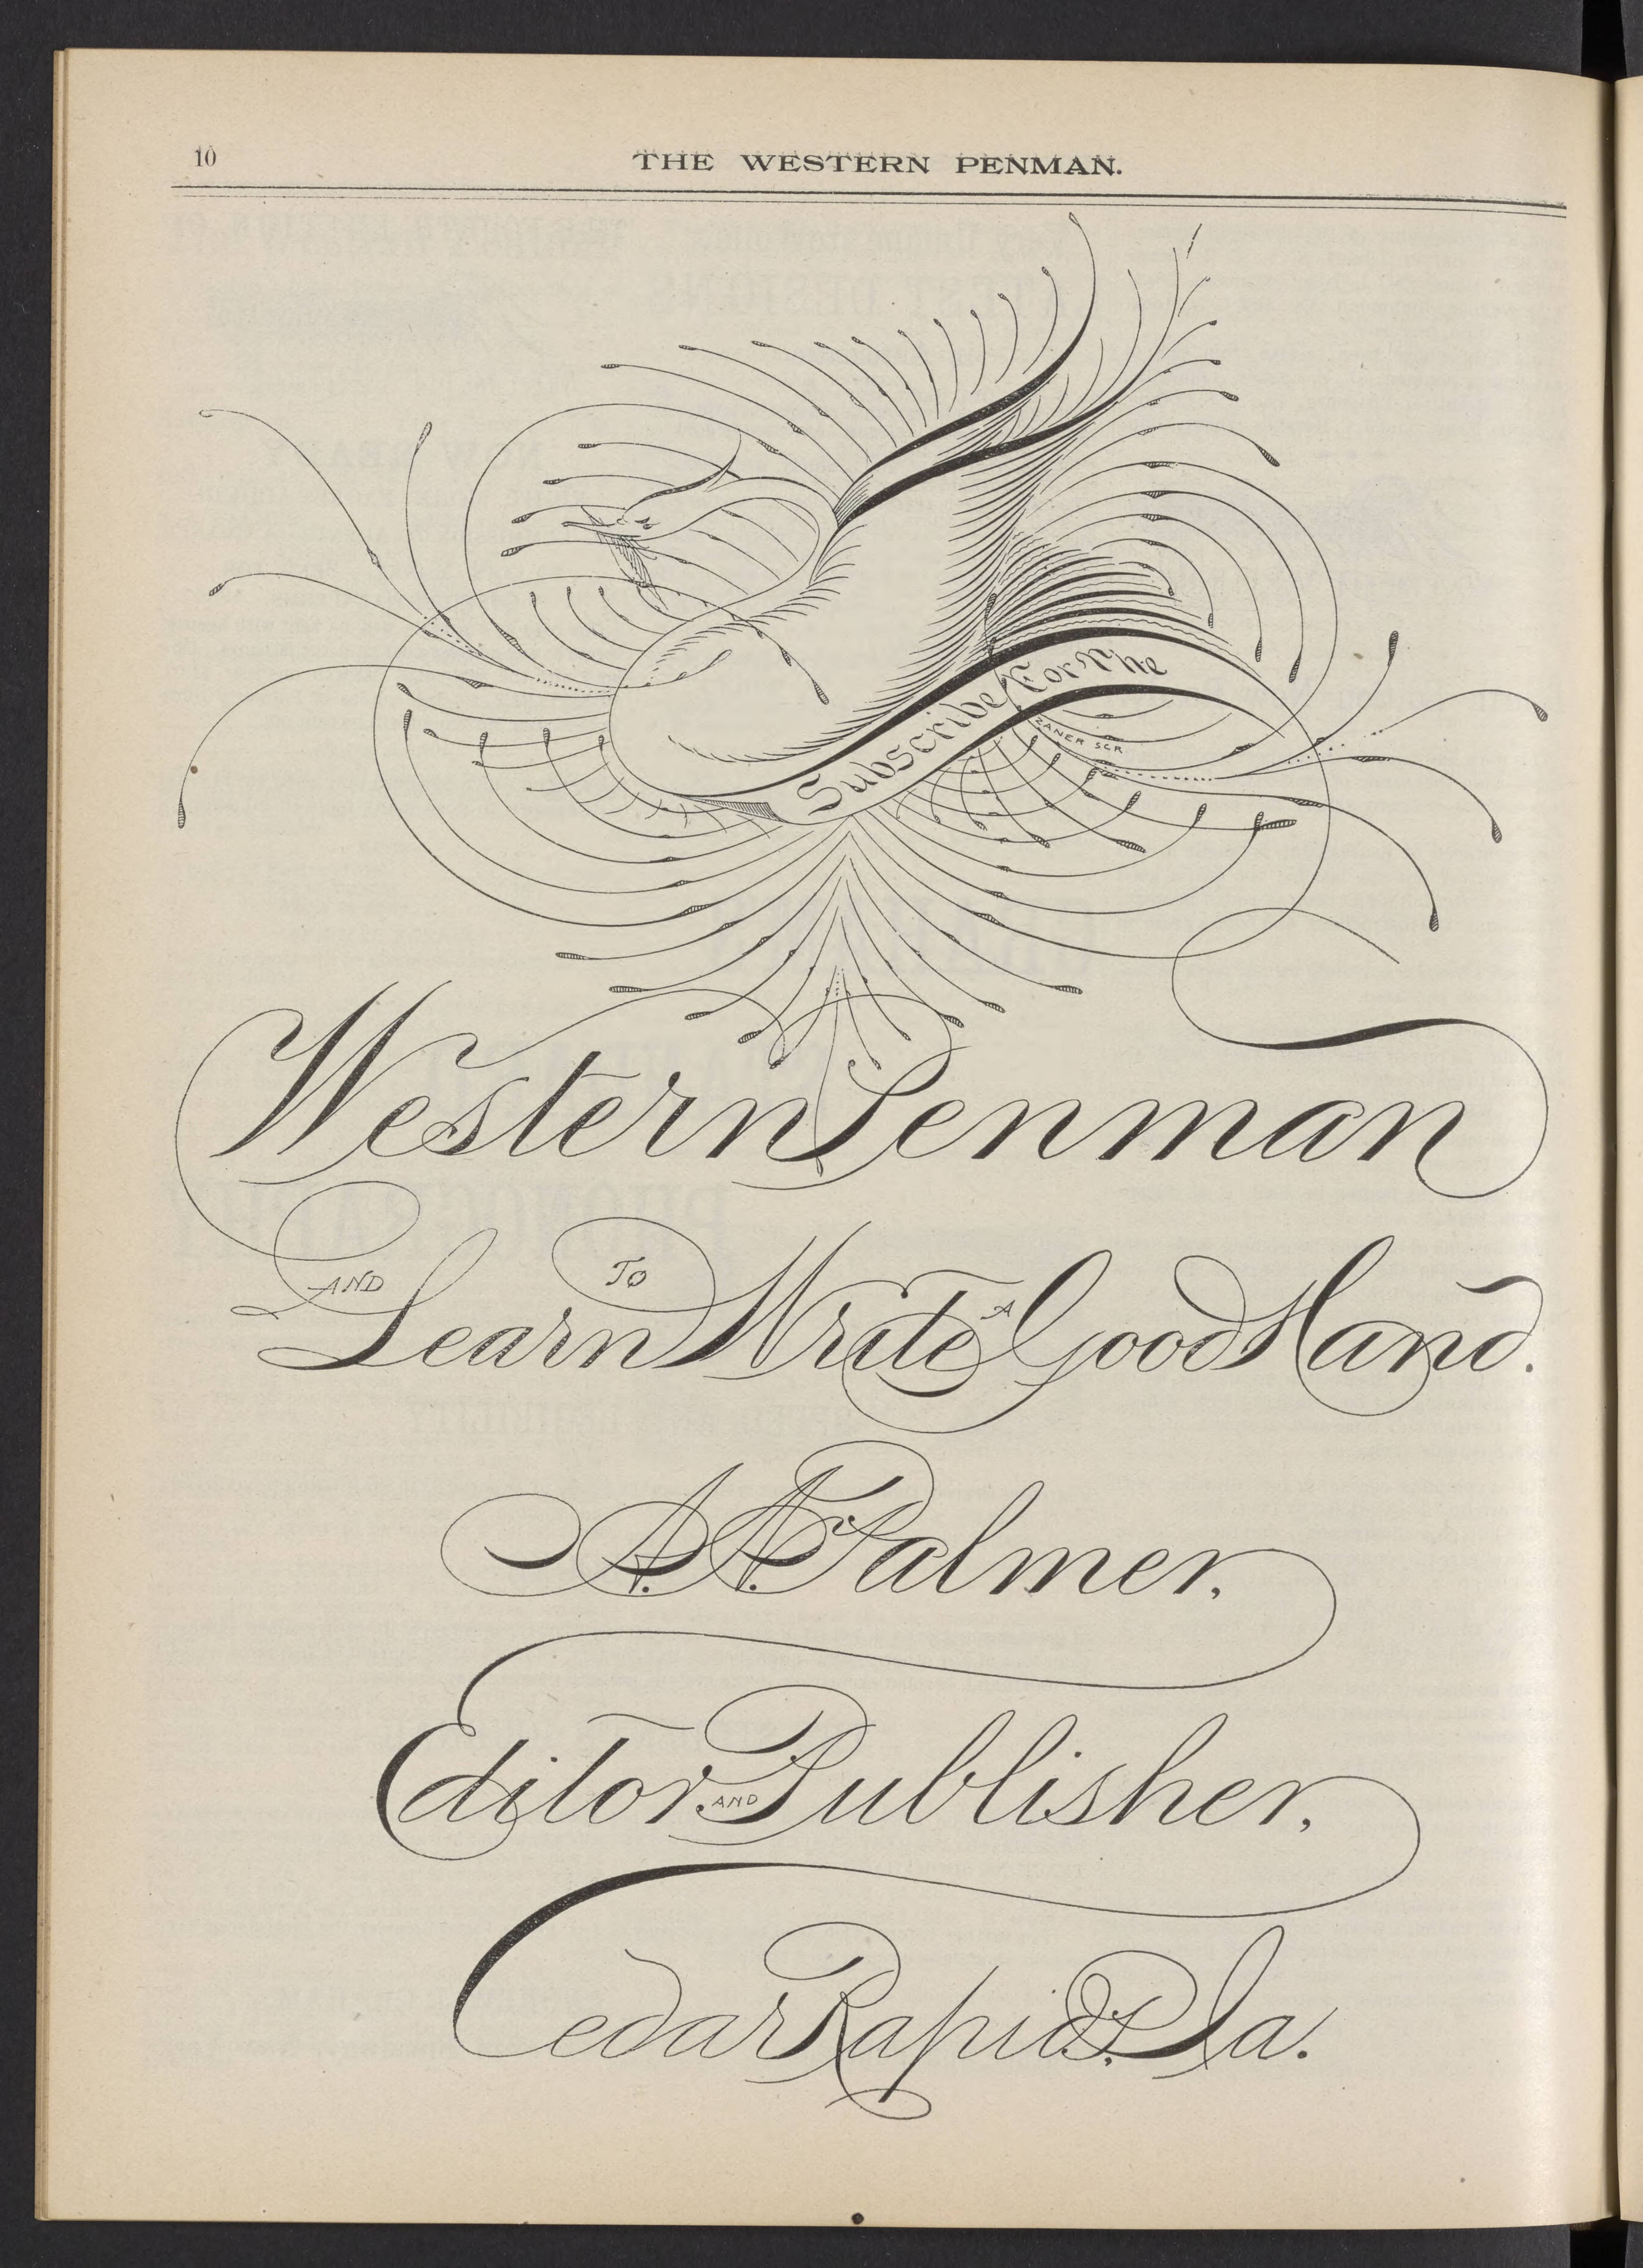 10
THE WESTERN PENMAN.
Subscribe For The
ZANER SCR
Western Penman
AND Learn TO Write A Good Hand.
A. N. Palmer,
Editor AND Publisher,
Cedar Rapids, Ia.